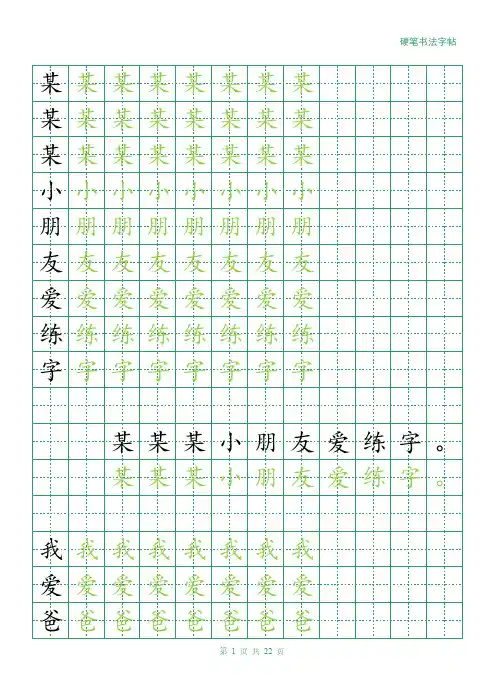 硬笔书法字帖
某某某某某某某某
某某某某某某某某
某某某某某某某某
小小小小小小小小
朋朋朋朋朋朋朋朋
友友友友友友友友
爱爱爱爱爱爱爱爱
练练练练练练练练
字字字字字字字字
某某某小朋友爱练字。
某某某小朋友爱练字。
我我我我我我我我
爱爱爱爱爱爱爱爱
爸爸爸爸爸爸爸爸
第 1 页 共 22 页